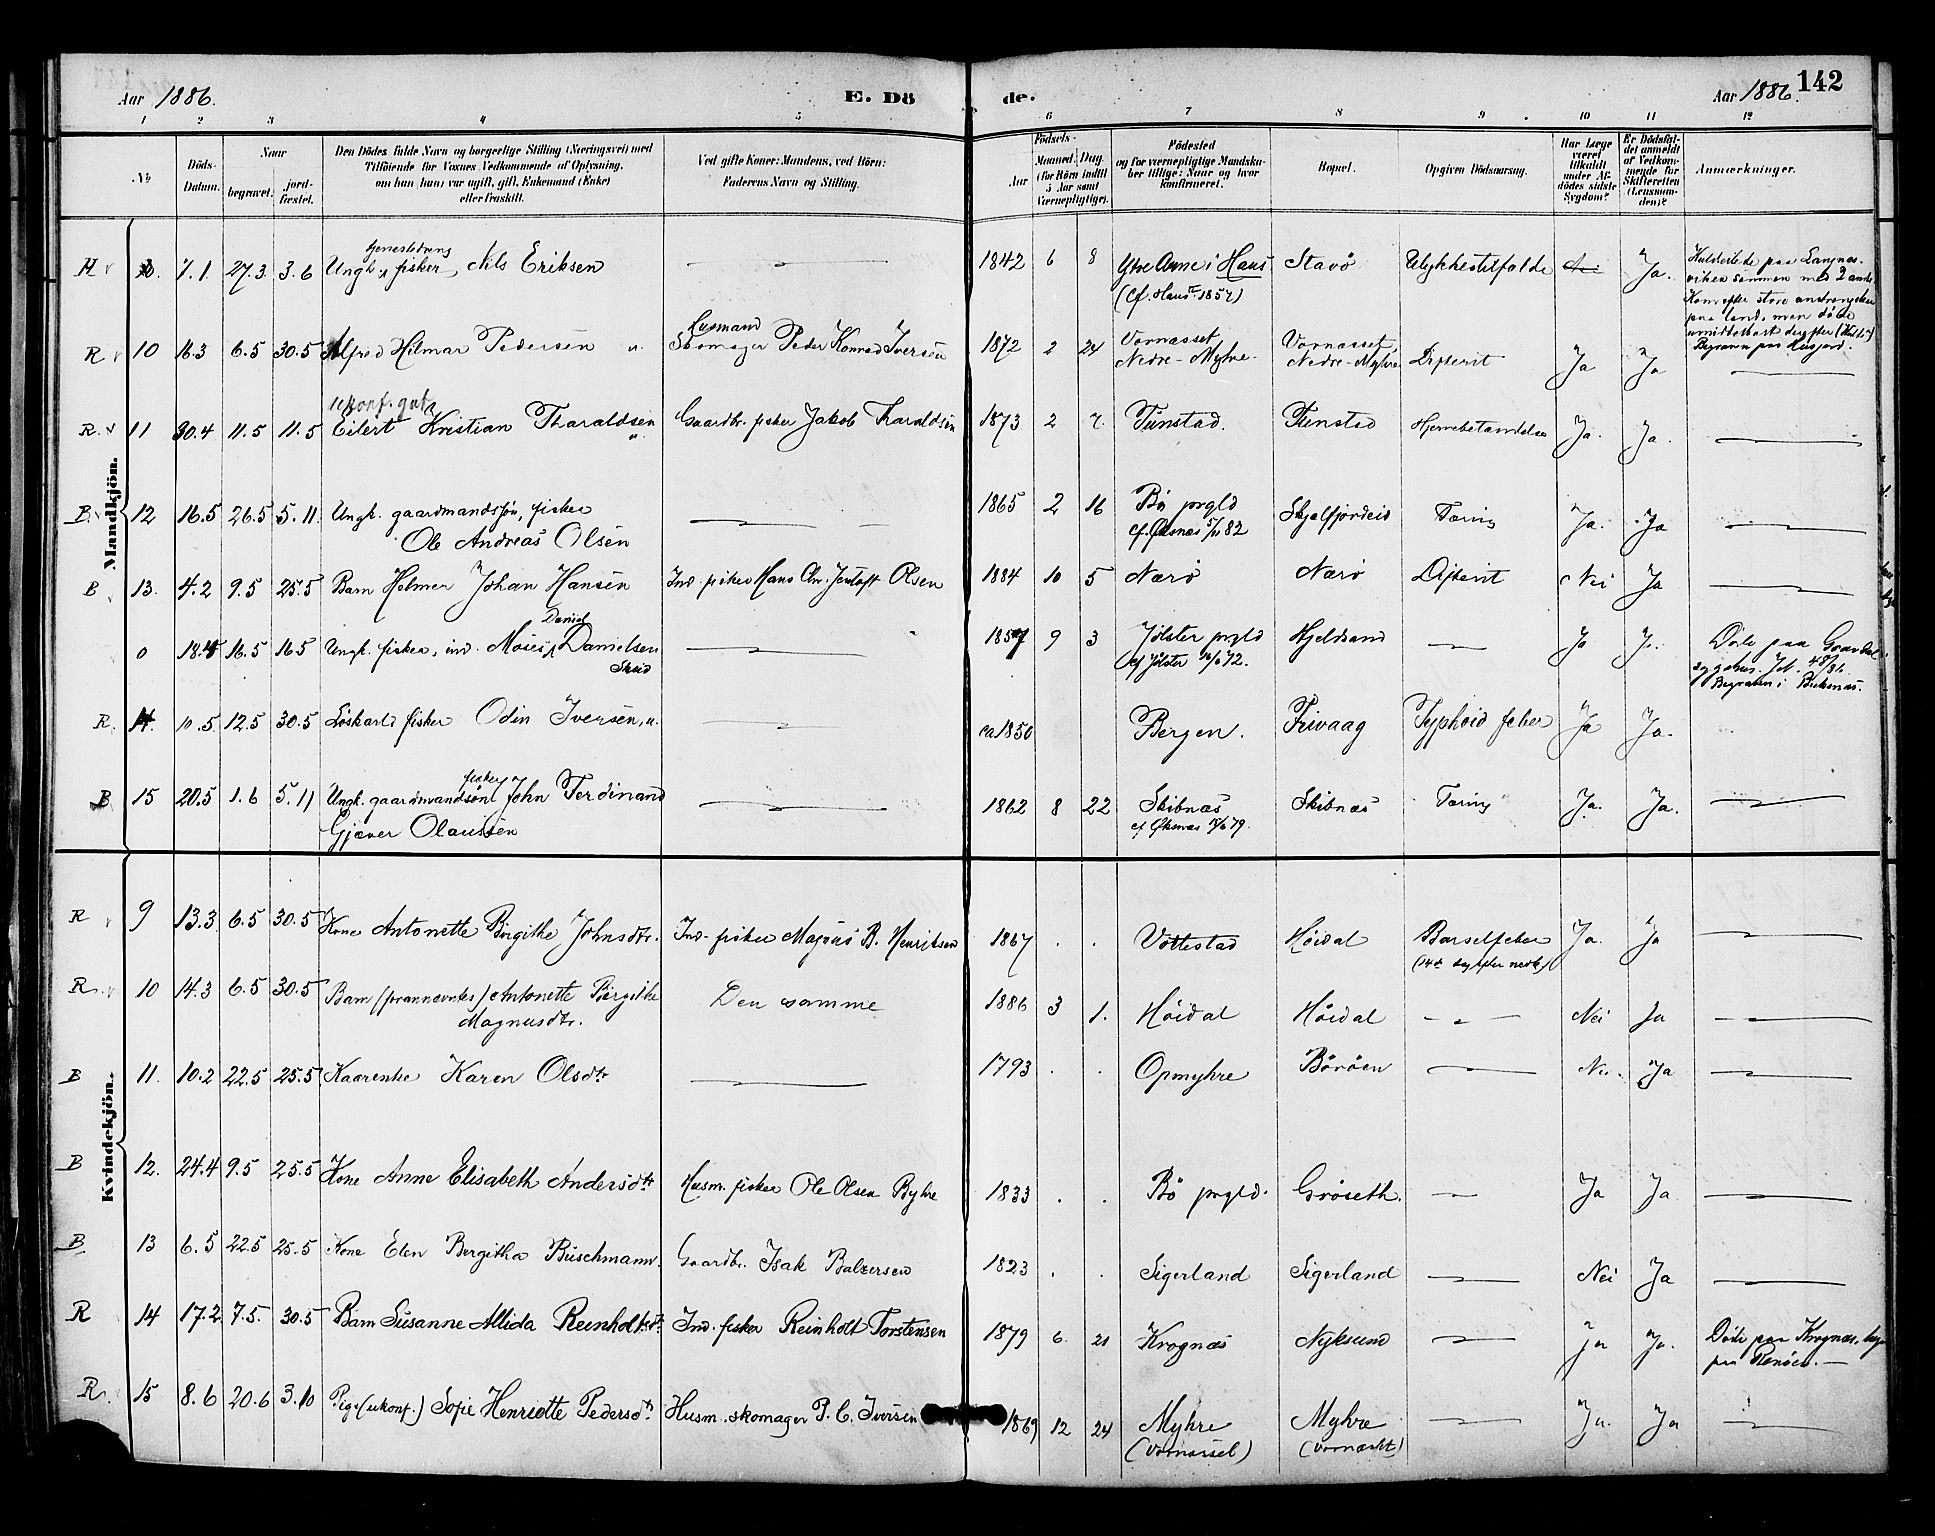 Aar 1886. E. Döde. Aar 1886. 142
1 2 3 4 5 6 7 8 9 10 11 12
No
Döds-Datum.
Naar
begravet. jordfæstet.
Den Dödes fulde Navn og borgerlige Stilling (Næringsvei) med
Tilföiende for Voxnes Vedkommende af Oplysning,
om han (hun) var ugift, gift, Enkemand (Enke)
eller fraskilt.
Ved gifte Koner: Mandens, ved Börn:
Faderens Navn og Stilling.
Födsels-
Aar Maaned. Dag.
(for Börn indtil
5 Aar samt
Værnepligtige).
Födested
og for værnepligtige Mandskaber tillige: Naar og hvor
konfirmeret.
Bopæl.
Opgiven Dödsaarsag.
Har Læge
været
tilkaldt
under Afdödes sidste
Sygdom?
Er Dödsfaldet anmeldt
af Vedkommende for
Skifteretten
(Lensmanden)?
Anmærkninger.
Mandkjön.
H 7.1 27.3 3.6 Ungk. tjenestedreng fisker Nils Eriksen — 1842 6 8 Ytre Arne i Haus Stavö Ulykkestilfælde Ja.
(Cf. Haus 1857)
Begraven paa Husjord.
R 10 16.3 6.5 30.5 Alfred Hilmar Pedersen u. Husmand Skomager Peder Konrad Iversen 1872 2 24 Vornæsset Nedre-Myhre Vornæsset Nedre-Myhre Difterit Ja Ja —
R. 11 30.4 11.5 11.5 ukonf. gut Eilert Kristian Tharaldsen u. Gaardbr. fisker Jakob Tharaldsen 1873 2 7. Tunstad. Tunstad Hjernebetændelse Ja. Ja. —
B. 12 16.5 26.5 5.11. Ungk. gaardmandssön, fisker — 1865 2 16 Bö prgld Skjelfjordeid Tæring Ja. Ja —
Ole Andreas Olsen cf. Öksnæs 82
B 13. 4.2 9.5 25.5 Barn Helmer Johan Hansen Ind. fisker Hans Chr. Jentoft Olsen 1884 10 5 Nærö Nærö Difterit Nei Ja —
0 18.4 16.5 16.5 Ungk. fisker, ind. Moses Daniel Danielsen — 1857 9 3 Jölster prgld Hjeldsand — Ja Ja.
Skeid cf Jölster 72.
Döde paa Gravdal
sygehus.
Begraven i Buksnæs.
R. 14. 10.5 12.5 30.5 Löskarl, fisker Odin Iversen, u. — ca 1850 Bergen. Frivaag Typhoid feber Ja Ja.
B 15 20.5 1.6 5.11 Ungk. gaardmandssön fisker John Ferdinand — 1862 8 22 Skibnæs Skibnæs Tæring Ja. Ja. —
Gjæver Olaussen cf Öksnæs 79.
Kvindekjön.
R 9 13.3 6.5 30.5 Kone Antonette Birgithe Johnsdtr. Ind. fisker Magnus B. Henriksen 1867 . . Vottestad Höidal Barselfeber Ja. Ja —
R. 10 14.3 6.5 30.5 Barn (forannævntes) Antonette Bergithe Den samme 1886 3 1. Höidal Höidal — Nei Ja —
Magnusdtr.
B 11. 10.2 22.5 25.5 Kaarenke Karen Olsdtr — 1793 . . Opmyhre Böröen — Nei Ja —
B 12. 24.4 9.5 25.5 Kone Anne Elisabeth Andersdtr Husm. fisker Ole Olsen Ryhre 1833 . . Bö prgld. Gröseth. — Ja Ja —
B. 13 6.5 22.5 25.5 Kone Elen Bergitha Buschmann. Gaardbr. Isak Balzersen 1823 . . Sigerland Sigerland — Nei Ja —
R 14 17.2 7.5. 30.5 Barn Susanne Allida Reinholtsdtr Ind. fisker Reinholt Torstensen 1879 6. 21 Krognæs Nyksund — ja Ja. Döde paa Krognæs,
paa
R. 15 8.6 20.6 3.10 Pige (ukonf.) Sofie Henriette Pedersdtr Husm. skomager P. C. Iversen 1869 12 24 Myhre Myhre — Ja. Ja —
(Vornæsset) (Vornæsset)